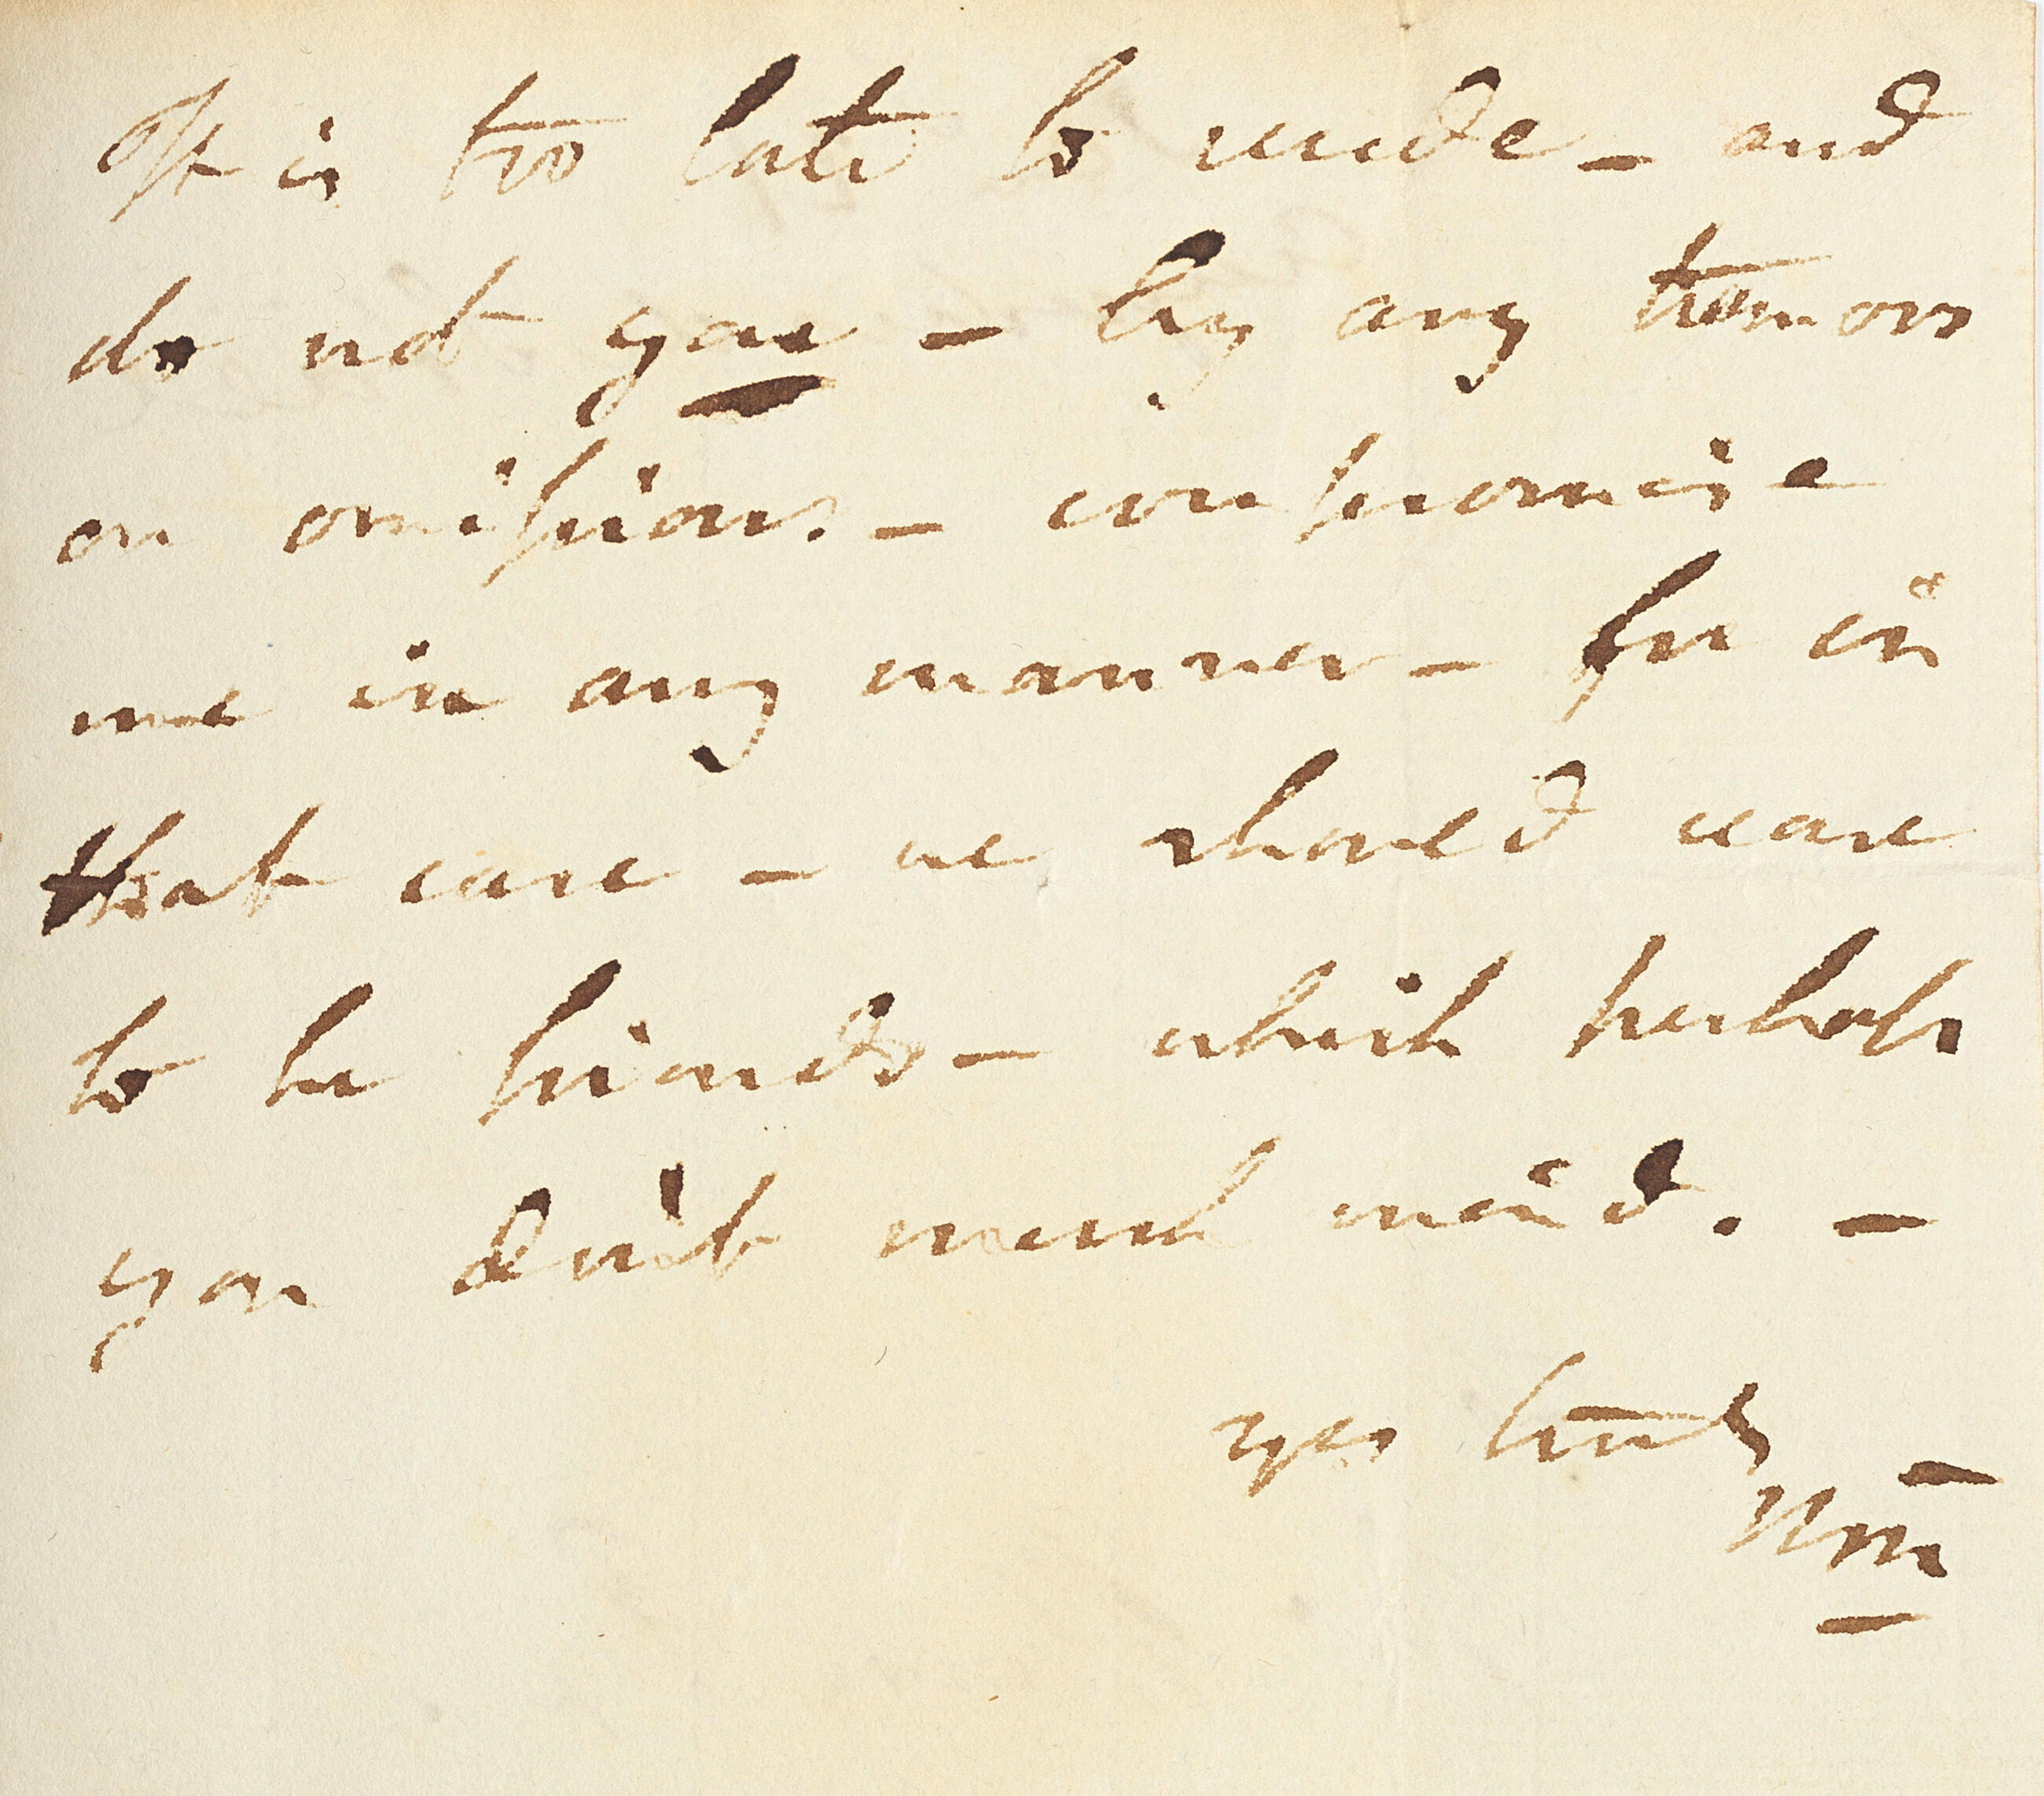 It is too late to recede – and
do not you – by any tremors
or omissions. – compromise
me in any manner – for in
that case – we should cease
to be friends – which perhaps
you don't much mind. –
yrs truly